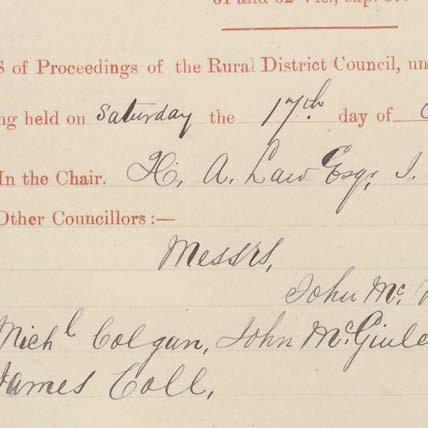 61 and 62 Vic., cap.
S of Proceedings of the Rural District Council, un
ng held on Saturday the 17th day of
In the Chair. H. A. Law Esqr, J.
Other Councillors :—
Messrs,
John Mc.
Michl Colgan, John McGinle
James Coll,